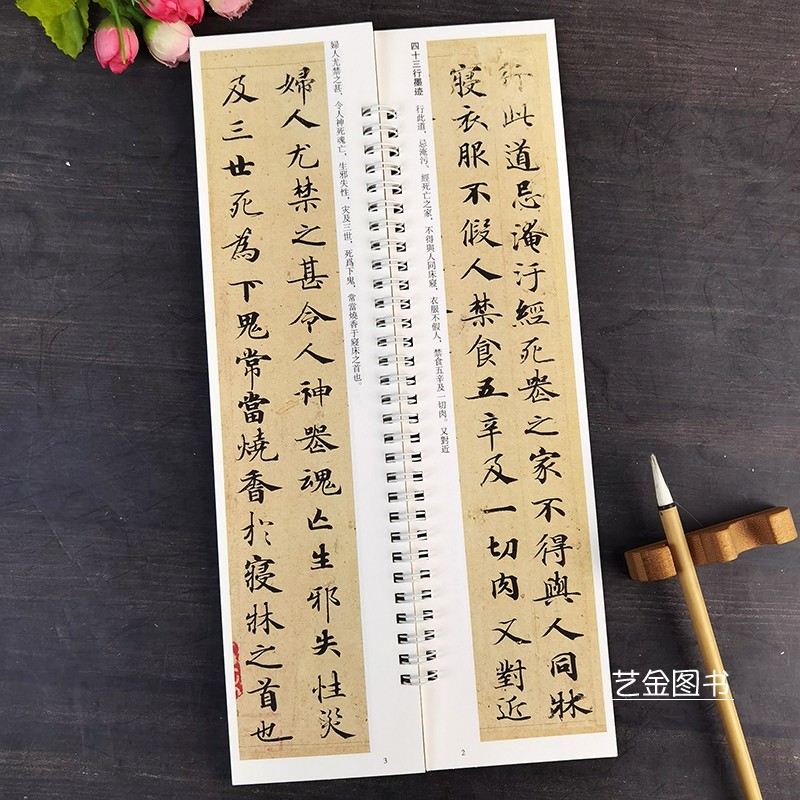 行此道忌淹汙經死喪之家不得與人同牀
寢衣服不假人禁食五辛及一切肉又對近
四十三行墨迹
行此道，忌淹污、經死亡之家，不得與人同床寢，衣服不假人，禁食五辛及一切肉。又對近
2
婦人尤禁之甚，令人神死魂亡，生邪失性，灾及三世，死爲下鬼，常當燒香于寢床之首也。
婦人尤禁之甚令人神喪魂亡生邪失性災
及三世死為下鬼常當燒香於寢牀之首也
3
艺金图书